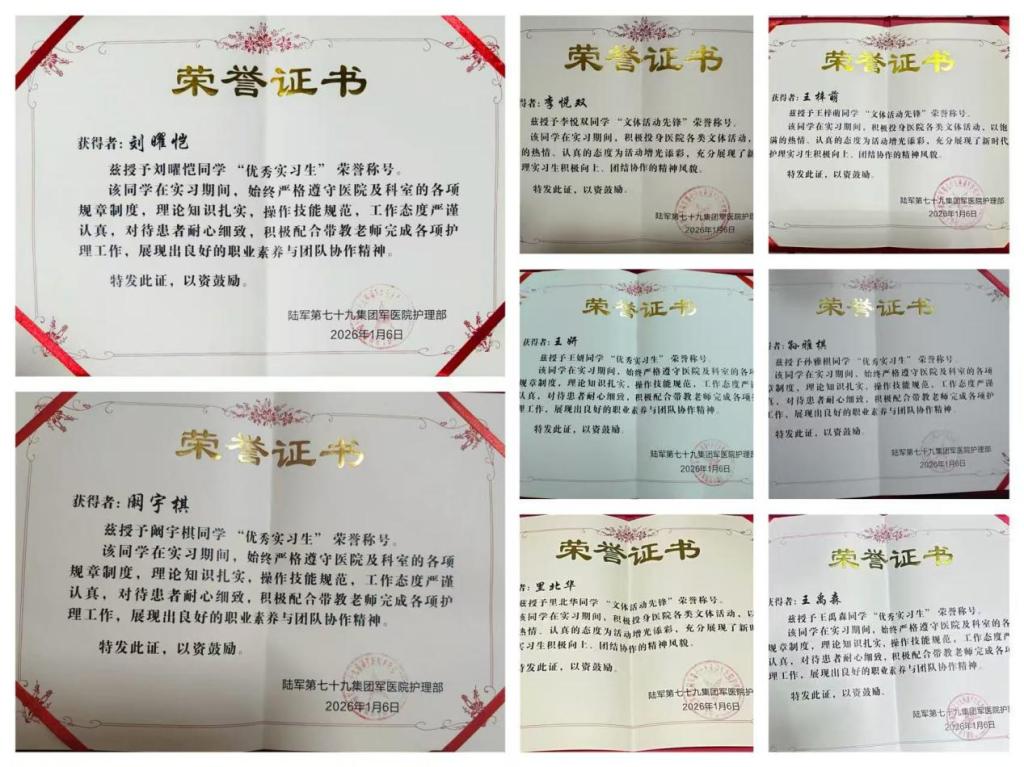 荣誉证书
获得者：刘曜恺
兹授予刘曜恺同学“优秀实习生”荣誉称号。
该同学在实习期间，始终严格遵守医院及科室的各项
规章制度，理论知识扎实，操作技能规范，工作态度严谨
认真，对待患者耐心细致，积极配合带教老师完成各项护
理工作，展现出良好的职业素养与团队协作精神。
特发此证，以资鼓励。
陆军第七十九集团军医院护理部
2026年1月6日
荣誉证书
获得者：阚宇棋
兹授予阚宇棋同学“优秀实习生”荣誉称号。
该同学在实习期间，始终严格遵守医院及科室的各项
规章制度，理论知识扎实，操作技能规范，工作态度严谨
认真，对待患者耐心细致，积极配合带教老师完成各项护
理工作，展现出良好的职业素养与团队协作精神。
特发此证，以资鼓励。
陆军第七十九集团军医院护理部
2026年1月6日
荣誉证书
得者：李悦双
兹授予李悦双同学“文体活动先锋”荣誉称号。
该同学在实习期间，积极投身医院各类文体活动，
的热情、认真的态度为活动增光添彩，充分展现了新
理实习生积极向上、团结协作的精神风貌。
特发此证，以资鼓励。
陆军第七十九集团军医院护理部
2026年1月6日
荣誉证书
获得者：王梓萌
兹授予王梓萌同学“文体活动先锋”荣誉称号。
该同学在实习期间，积极投身医院各类文体活动，以饱
满的热情、认真的态度为活动增光添彩，充分展现了新时代
护理实习生积极向上、团结协作的精神风貌。
特发此证，以资鼓励。
陆军第七十九集团军医院护理部
2026年1月6日
荣誉证书
获得者：王妍
兹授予王妍同学“优秀实习生”荣誉称号。
该同学在实习期间，始终严格遵守医院及科室的各项
规章制度，理论知识扎实，操作技能规范，工作态度严
认真，对待患者耐心细致，积极配合带教老师完成各项
理工作，展现出良好的职业素养与团队协作精神。
特发此证，以资鼓励。
陆军第七十九集团军医院护理部
2026年1月6日
荣誉证书
得者：孙雅棋
兹授予孙雅棋同学“优秀实习生”荣誉称号。
该同学在实习期间，始终严格遵守医院及科室的各项
章制度，理论知识扎实，操作技能规范，工作态度严谨
真，对待患者耐心细致，积极配合带教老师完成各项护
工作，展现出良好的职业素养与团队协作精神。
特发此证，以资鼓励。
陆军第七十九集团军医院护理部
2026年1月6日
荣誉证书
者：里北华
兹授予里北华同学“文体活动先锋”荣誉称号。
该同学在实习期间，积极投身医院各类文体活动，以
热情、认真的态度为活动增光添彩，充分展现了新时
实习生积极向上、团结协作的精神风貌。
特发此证，以资鼓励。
陆军第七十九集团军医院护理部
2026年1月6日
荣誉证书
获得者：王禹森
兹授予王禹森同学“优秀实习生”荣誉称号。
该同学在实习期间，始终严格遵守医院及科室的各
规章制度，理论知识扎实，操作技能规范，工作态度严
认真，对待患者耐心细致，积极配合带教老师完成各项
理工作，展现出良好的职业素养与团队协作精神。
特发此证，以资鼓励。
陆军第七十九集团军医院护理
2026年1月6日